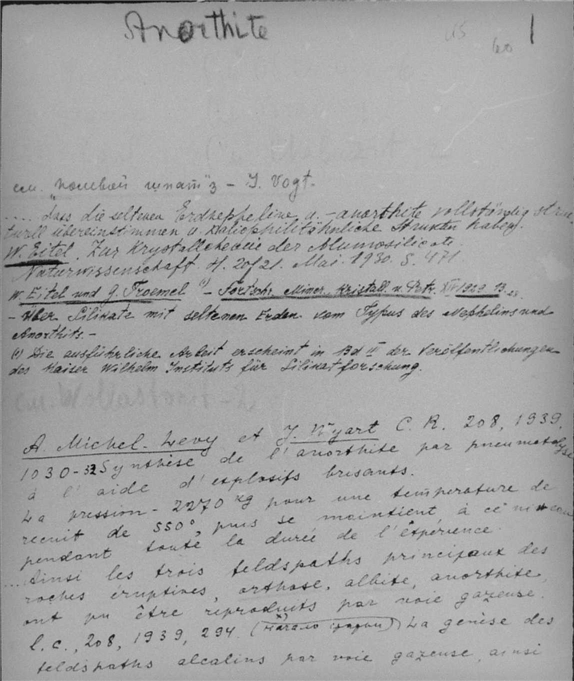 Anorthite
15
60 1
см. "полевой шпат" 3 - J. Vogt.
.... dass die seltenen Erdnepheline u. - anorthite vollständig struk-
turell übereinstimmen u. haben.
W. Eitel. Zur Krystallchemie der Alumosilicate
Naturwissenschaft H. 20/21. Mai. 1930. S. 471
W. Eitel und G. Troemel (1) - Fortschr. Miner. Kristall. u. Petr. 1929
- Über Silikate mit seltenen Erden vom Typus des Nephelins und
Anorthits. -
(1) Die ausführliche Arbeit erscheint in Bd V der Veröffentlichungen
des Kaiser Wilhelm Instituts für Silikatforschung.
см. Wollastonit - 2
A. Michel-Levy et J. Wyart C. R. 208, 1939,
1030-32 Synthèse de l'anorthite par pneumatolyse
à l'aide d'explosifs brisants.
La pression - 2270 kg pour une température de
recuit de 550°, puis se maintient à ce
pendant toute la durée de l'expérience.
...ainsi les trois feldspaths principaux des
roches éruptives, orthose, albite, anorthite,
ont pu être reproduits par voie gazeuse.
l.c., 208, 1939, 294. (начало) La genèse des
feldspaths alcalins par voie gazeuse, ainsi